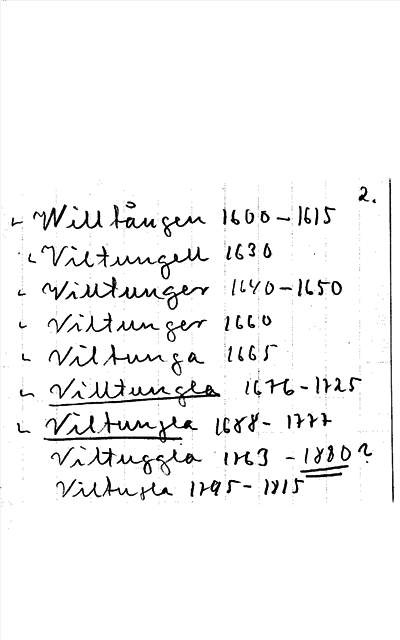 2.
Willtången 1600-1615
Viltungell 1630
Willtunger 1640-1650
Viltunger 1660
Viltunga 1665
Villtungla 1676-1725
Viltungla 1688-1777
Viltuggla 1763-1880?
Viltugla 1795-1815